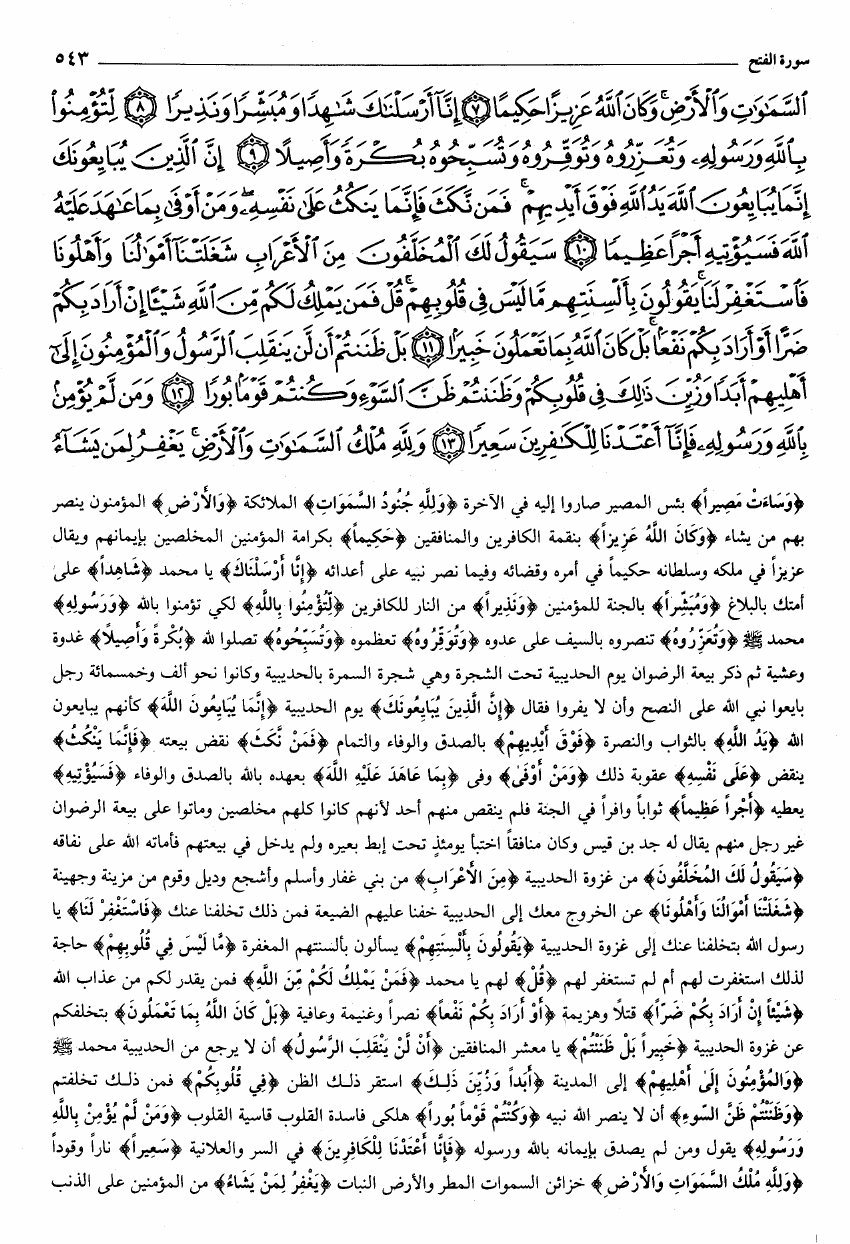 سورة الفتح ٥٤٣
السَّمَٰوَٰتِ وَٱلْأَرْضِ ۚ وَكَانَ ٱللَّهُ عَزِيزًا حَكِيمًا ﴿٧﴾ إِنَّآ أَرْسَلْنَٰكَ شَٰهِدًا وَمُبَشِّرًا وَنَذِيرًا ﴿٨﴾ لِّتُؤْمِنُوا۟
بِٱللَّهِ وَرَسُولِهِۦ وَتُعَزِّرُوهُ وَتُوَقِّرُوهُ وَتُسَبِّحُوهُ بُكْرَةً وَأَصِيلًا ﴿٩﴾ إِنَّ ٱلَّذِينَ يُبَايِعُونَكَ
إِنَّمَا يُبَايِعُونَ ٱللَّهَ يَدُ ٱللَّهِ فَوْقَ أَيْدِيهِمْ ۚ فَمَن نَّكَثَ فَإِنَّمَا يَنكُثُ عَلَىٰ نَفْسِهِۦ ۖ وَمَنْ أَوْفَىٰ بِمَا عَٰهَدَ عَلَيْهُ
ٱللَّهَ فَسَيُؤْتِيهِ أَجْرًا عَظِيمًا ﴿١٠﴾ سَيَقُولُ لَكَ ٱلْمُخَلَّفُونَ مِنَ ٱلْأَعْرَابِ شَغَلَتْنَآ أَمْوَٰلُنَا وَأَهْلُونَا
فَٱسْتَغْفِرْ لَنَا ۚ يَقُولُونَ بِأَلْسِنَتِهِم مَّا لَيْسَ فِى قُلُوبِهِمْ ۚ قُلْ فَمَن يَمْلِكُ لَكُم مِّنَ ٱللَّهِ شَيْـًٔا إِنْ أَرَادَ بِكُمْ
ضَرًّا أَوْ أَرَادَ بِكُمْ نَفْعًۢا ۚ بَلْ كَانَ ٱللَّهُ بِمَا تَعْمَلُونَ خَبِيرًۢا ﴿١١﴾ بَلْ ظَنَنتُمْ أَن لَّن يَنقَلِبَ ٱلرَّسُولُ وَٱلْمُؤْمِنُونَ إِلَىٰٓ
أَهْلِيهِمْ أَبَدًا وَزُيِّنَ ذَٰلِكَ فِى قُلُوبِكُمْ وَظَنَنتُمْ ظَنَّ ٱلسَّوْءِ وَكُنتُمْ قَوْمًۢا بُورًا ﴿١٢﴾ وَمَن لَّمْ يُؤْمِنۢ
بِٱللَّهِ وَرَسُولِهِۦ فَإِنَّآ أَعْتَدْنَا لِلْكَٰفِرِينَ سَعِيرًا ﴿١٣﴾ وَلِلَّهِ مُلْكُ ٱلسَّمَٰوَٰتِ وَٱلْأَرْضِ ۚ يَغْفِرُ لِمَن يَشَآءُ
﴿وَسَاءَتْ مَصِيراً﴾ بئس المصير صاروا إليه في الآخرة ﴿وَلِلَّهِ جُنُودُ السَّمَوَاتِ﴾ الملائكة ﴿وَالأَرْضِ﴾ المؤمنون ينصر
بهم من يشاء ﴿وَكَانَ اللَّهُ عَزِيزاً﴾ بنقمة الكافرين والمنافقين ﴿حَكِيماً﴾ بكرامة المؤمنين المخلصين بإيمانهم ويقال
عزيزاً في ملكه وسلطانه حكيماً في أمره وقضائه وفيما نصر نبيه على أعدائه ﴿إِنَّا أَرْسَلْنَاكَ﴾ يا محمد ﴿شَاهِداً﴾ على
أمتك بالبلاغ ﴿وَمُبَشِّراً﴾ بالجنة للمؤمنين ﴿وَنَذِيراً﴾ من النار للكافرين ﴿لِتُؤْمِنُوا بِاللَّهِ﴾ لكي تؤمنوا بالله ﴿وَرَسُولِهِ﴾
محمد ﷺ ﴿وَتُعَزِّرُوهُ﴾ تنصروه بالسيف على عدوه ﴿وَتُوَقِّرُوهُ﴾ تعظموه ﴿وَتُسَبِّحُوهُ﴾ تصلوا لله ﴿بُكْرَةً وَأَصِيلاً﴾ غدوة
وعشية ثم ذكر بيعة الرضوان يوم الحديبية تحت الشجرة وهي شجرة السمرة بالحديبية وكانوا نحو ألف وخمسمائة رجل
بايعوا نبي الله على النصح وأن لا يفروا فقال ﴿إِنَّ الَّذِينَ يُبَايِعُونَكَ﴾ يوم الحديبية ﴿إِنَّمَا يُبَايِعُونَ اللَّهَ﴾ كأنهم يبايعون
الله ﴿يَدُ اللَّهِ﴾ بالثواب والنصرة ﴿فَوْقَ أَيْدِيهِمْ﴾ بالصدق والوفاء والتمام ﴿فَمَنْ نَّكَثَ﴾ نقض بيعته ﴿فَإِنَّمَا يَنْكُثُ﴾
ينقض ﴿عَلَى نَفْسِهِ﴾ عقوبة ذلك ﴿وَمَنْ أَوْفَىٰ﴾ وفى ﴿بِمَا عَاهَدَ عَلَيْهِ اللَّهَ﴾ بعهده بالله بالصدق والوفاء ﴿فَسَيُؤْتِيهِ﴾
يعطيه ﴿أَجْراً عَظِيماً﴾ ثواباً وافراً في الجنة فلم ينقص منهم أحد لأنهم كانوا كلهم مخلصين وماتوا على بيعة الرضوان
غير رجل منهم يقال له جد بن قيس وكان منافقاً اختبأ يومئذٍ تحت إبط بعيره ولم يدخل في بيعتهم فأماته الله على نفاقه
﴿سَيَقُولُ لَكَ المُخَلَّفُونَ﴾ من غزوة الحديبية ﴿مِنَ الأَعْرَابِ﴾ من بني غفار وأسلم وأشجع وديل وقوم من مزينة وجهينة
﴿شَغَلَتْنَا أَمْوَالُنَا وَأَهْلُونَا﴾ عن الخروج معك إلى الحديبية خفنا عليهم الضيعة فمن ذلك تخلفنا عنك ﴿فَاسْتَغْفِرْ لَنَا﴾ يا
رسول الله بتخلفنا عنك إلى غزوة الحديبية ﴿يَقُولُونَ بِأَلْسِنَتِهِمْ﴾ يسألون بألسنتهم المغفرة ﴿مَّا لَيْسَ فِي قُلُوبِهِمْ﴾ حاجة
لذلك استغفرت لهم أم لم تستغفر لهم ﴿قُلْ﴾ لهم يا محمد ﴿فَمَنْ يَمْلِكُ لَكُمْ مِّنَ اللَّهِ﴾ فمن يقدر لكم من عذاب الله
﴿شَيْئاً إِنْ أَرَادَ بِكُمْ ضَرّاً﴾ قتلاً وهزيمة ﴿أَوْ أَرَادَ بِكُمْ نَفْعاً﴾ نصراً وغنيمة وعافية ﴿بَلْ كَانَ اللَّهُ بِمَا تَعْمَلُونَ﴾ بتخلفكم
عن غزوة الحديبية ﴿خَبِيراً بَلْ ظَنَنْتُمْ﴾ يا معشر المنافقين ﴿أَنْ لَنْ يَنْقَلِبَ الرَّسُولُ﴾ أن لا يرجع من الحديبية محمد ﷺ
﴿وَالمُؤْمِنُونَ إِلَىٰ أَهْلِيهِمْ﴾ إلى المدينة ﴿أَبَداً وَزُيِّنَ ذَلِكَ﴾ استقر ذلك الظن ﴿فِي قُلُوبِكُمْ﴾ فمن ذلك تخلفتم
﴿وَظَنَنْتُمْ ظَنَّ السّوءِ﴾ أن لا ينصر الله نبيه ﴿وَكُنْتُمْ قَوْماً بُوراً﴾ هلكى فاسدة القلوب قاسية القلوب ﴿وَمَنْ لَّمْ يُؤْمِنْ بِاللَّهِ
وَرَسُولِهِ﴾ يقول ومن لم يصدق بإيمانه بالله ورسوله ﴿فَإِنَّا أَعْتَدْنَا لِلْكَافِرِينَ﴾ في السر والعلانية ﴿سَعِيراً﴾ ناراً وقوداً
﴿وَلِلَّهِ مُلْكُ السَّمَوَاتِ وَالأَرْضِ﴾ خزائن السموات المطر والأرض النبات ﴿يَغْفِرُ لِمَنْ يَشَاءُ﴾ من المؤمنين على الذنب